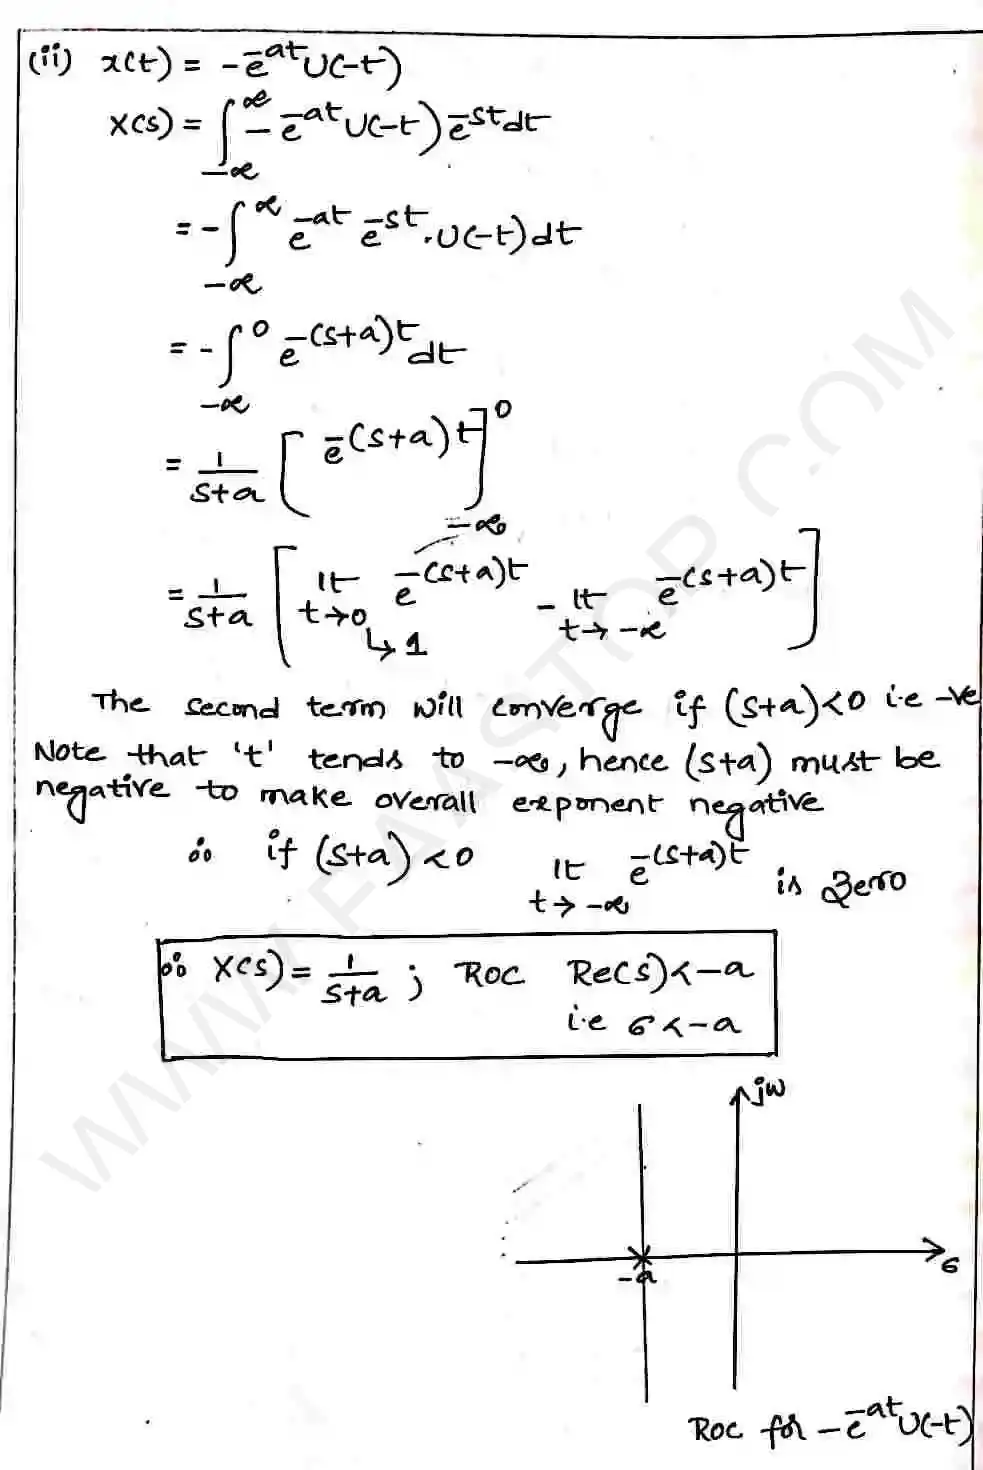 (ii) x(t) = -e^-at U(-t)
X(s) = ∫_-∞^∞ -e^-at U(-t) e^-st dt
= -∫_-∞^∞ e^-at e^-st . U(-t) dt
= -∫_-∞^0 e^-(s+a)t dt
= 1/(s+a) [ e^-(s+a)t ]_-∞^0
= 1/(s+a) [ lt t→0 e^-(s+a)t - lt t→-∞ e^-(s+a)t ]
↳ 1
The second term will converge if (s+a)<0 i.e -ve
Note that 't' tends to -∞, hence (s+a) must be
negative to make overall exponent negative
∴ if (s+a) <0 lt t→-∞ e^-(s+a)t is zero
∴ X(s) = 1/(s+a) ; ROC Re(s)<-a
i.e σ<-a
jω
-a
σ
ROC for -e^-at U(-t)
WWW.FAASTOP.COM